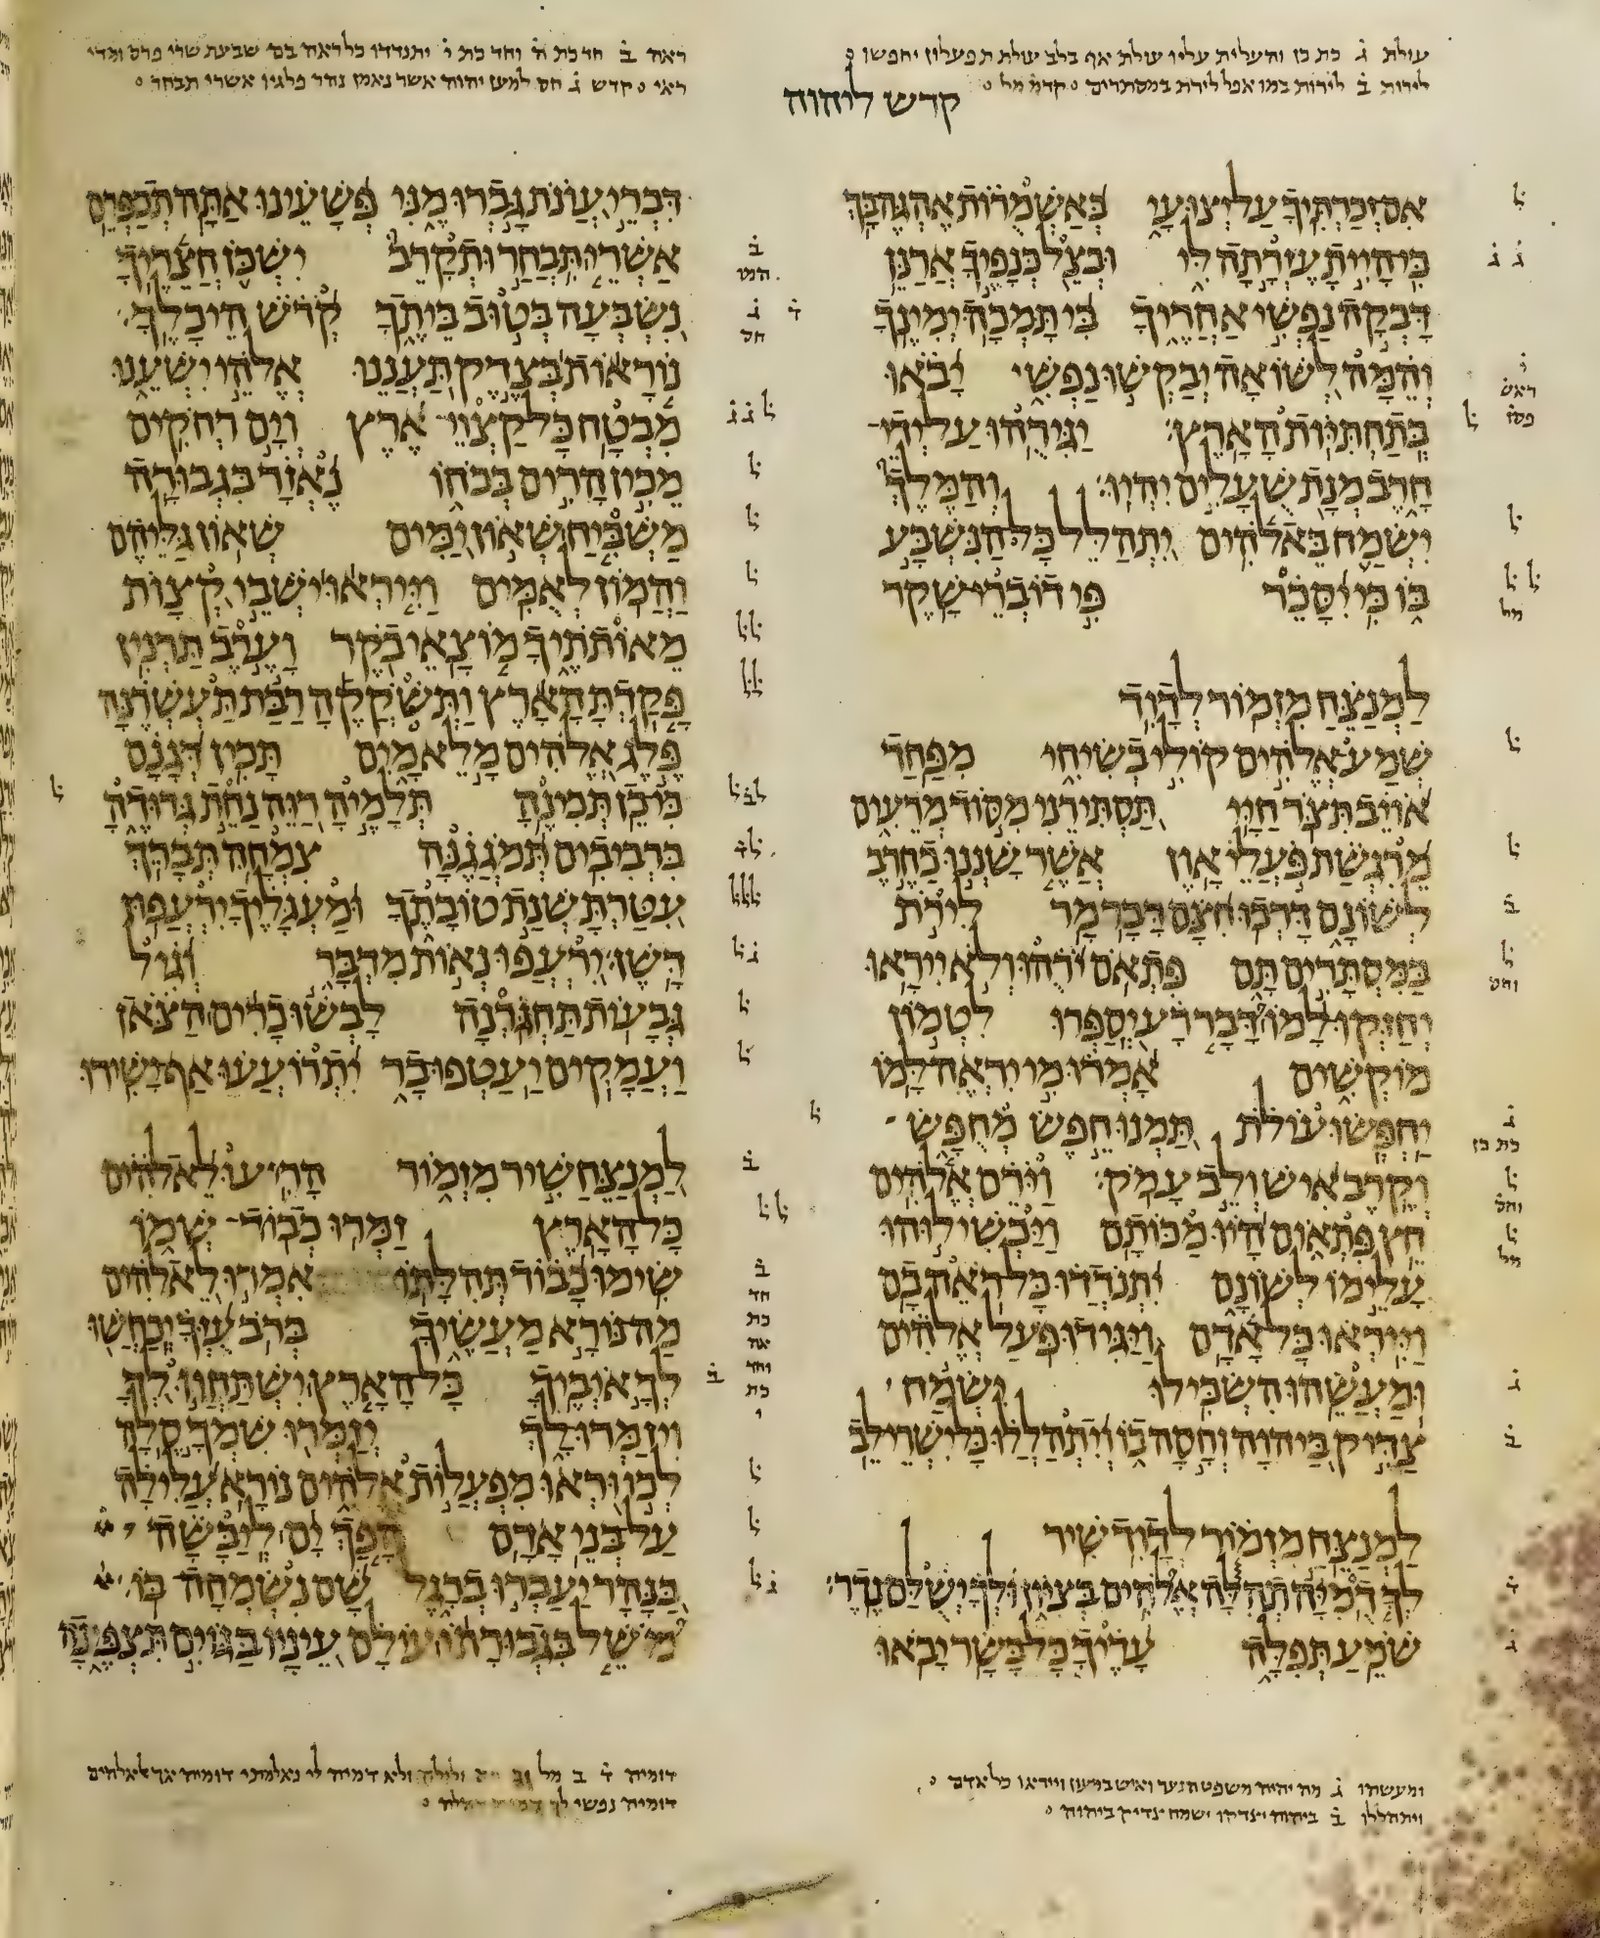 עולת ג֗ כת כן והעלית עליו עולת אף בלב עולת תפעלון יחפשו
לירות ב֗ לירות במו אפל לירת במסתרים קדמ מל
קדש ליהוה
אם זכרתיך על יצועי באשמרות אהגה בך
כי היית עזרתה לי ובצל כנפיך ארנן
דבקה נפשי אחריך בי תמכה ימינך
והמה לשואה יבקשו נפשי יבאו
בתחתיות הארץ יגירהו על ידי
חרב מנת שעלים יהיו והמלך
ישמח באלהים יתהלל כל הנשבע
בו כי יסכר פי דוברי שקר
למנצח מזמור לדוד
שמע אלהים קולי בשיחי מפחד
אויב תצר חיי תסתירני מסוד מרעים
מרגשת פעלי און אשר שננו כחרב
לשונם דרכו חצם דבר מר לירת
במסתרים תם פתאם ירהו ולא ייראו
יחזקו למו דבר רע יספרו לטמון
מוקשים אמרו מי יראה למו
יחפשו עולת תמנו חפש מחפש
וקרב איש ולב עמק וירם אלהים
חץ פתאום היו מכותם ויכשילוהו
עלימו לשונם יתנדדו כל ראה בם
וייראו כל אדם ויגידו פעל אלהים
ומעשהו השכילו ישמח
צדיק ביהוה וחסה בו ויתהללו כל ישרי לב
למנצח מזמור לדוד שיר
לך דמיה תהלה אלהים בציון ולך ישלם נדר
שמע תפלה עדיך כל בשר יבאו
ומעשהו ג֗ מה יהיה משפט הנער ואיש במעון וייראו כל אדם
ויתהללו ב֗ ביהוה יצדקו ישמח צדיק ביהוה
ראה ב֗ חד כת ה֗ וחד כת י֗ יתנדדו כל ראה בם שבעת שרי פרס ומדי
ראי קדש ג֗ חס למען יהוה אשר נאמן נהר פלגיו אשרי תבחר
דברי עונת גברו מני פשעינו אתה תכפרם
אשרי תבחר ותקרב ישכן חצריך
נשבעה בטוב ביתך קדש היכלך
נוראות בצדק תעננו אלהי ישענו
מבטח כל קצוי ארץ וים רחקים
מכין הרים בכחו נאזר בגבורה
משביח שאון ימים שאון גליהם
והמון לאמים וייראו ישבי קצות
מאותתיך מוצאי בקר וערב תרנין
פקדת הארץ ותשקקה רבת תעשרנה
פלג אלהים מלא מים תכין דגנם
כי כן תכינה תלמיה רוה נחת גדודה
ברביבים תמגגנה צמחה תברך
עטרת שנת טובתך ומעגליך ירעפון
דשן ירעפו נאות מדבר וגיל
גבעות תחגרנה לבשו כרים הצאן
ועמקים יעטפו בר יתרועעו אף ישירו
למנצח שיר מזמור הריעו לאלהים
כל הארץ זמרו כבוד שמו
שימו כבוד תהלתו אמרו לאלהים
מה נורא מעשיך ברב עזך יכחשו
לך איביך כל הארץ ישתחוו לך
ויזמרו לך יזמרו שמך סלה
לכו וראו מפעלות אלהים נורא עלילה
על בני אדם הפך ים ליבשה
בנהר יעברו ברגל שם נשמחה בו
משל בגבורתו עולם עיניו בגוים תצפינה
דומיה ד֗ ב מל ולילה ולא דמיה לי נאלמתי דומיה אך אל אלהים
דומיה נפשי לך דמיה תהלה